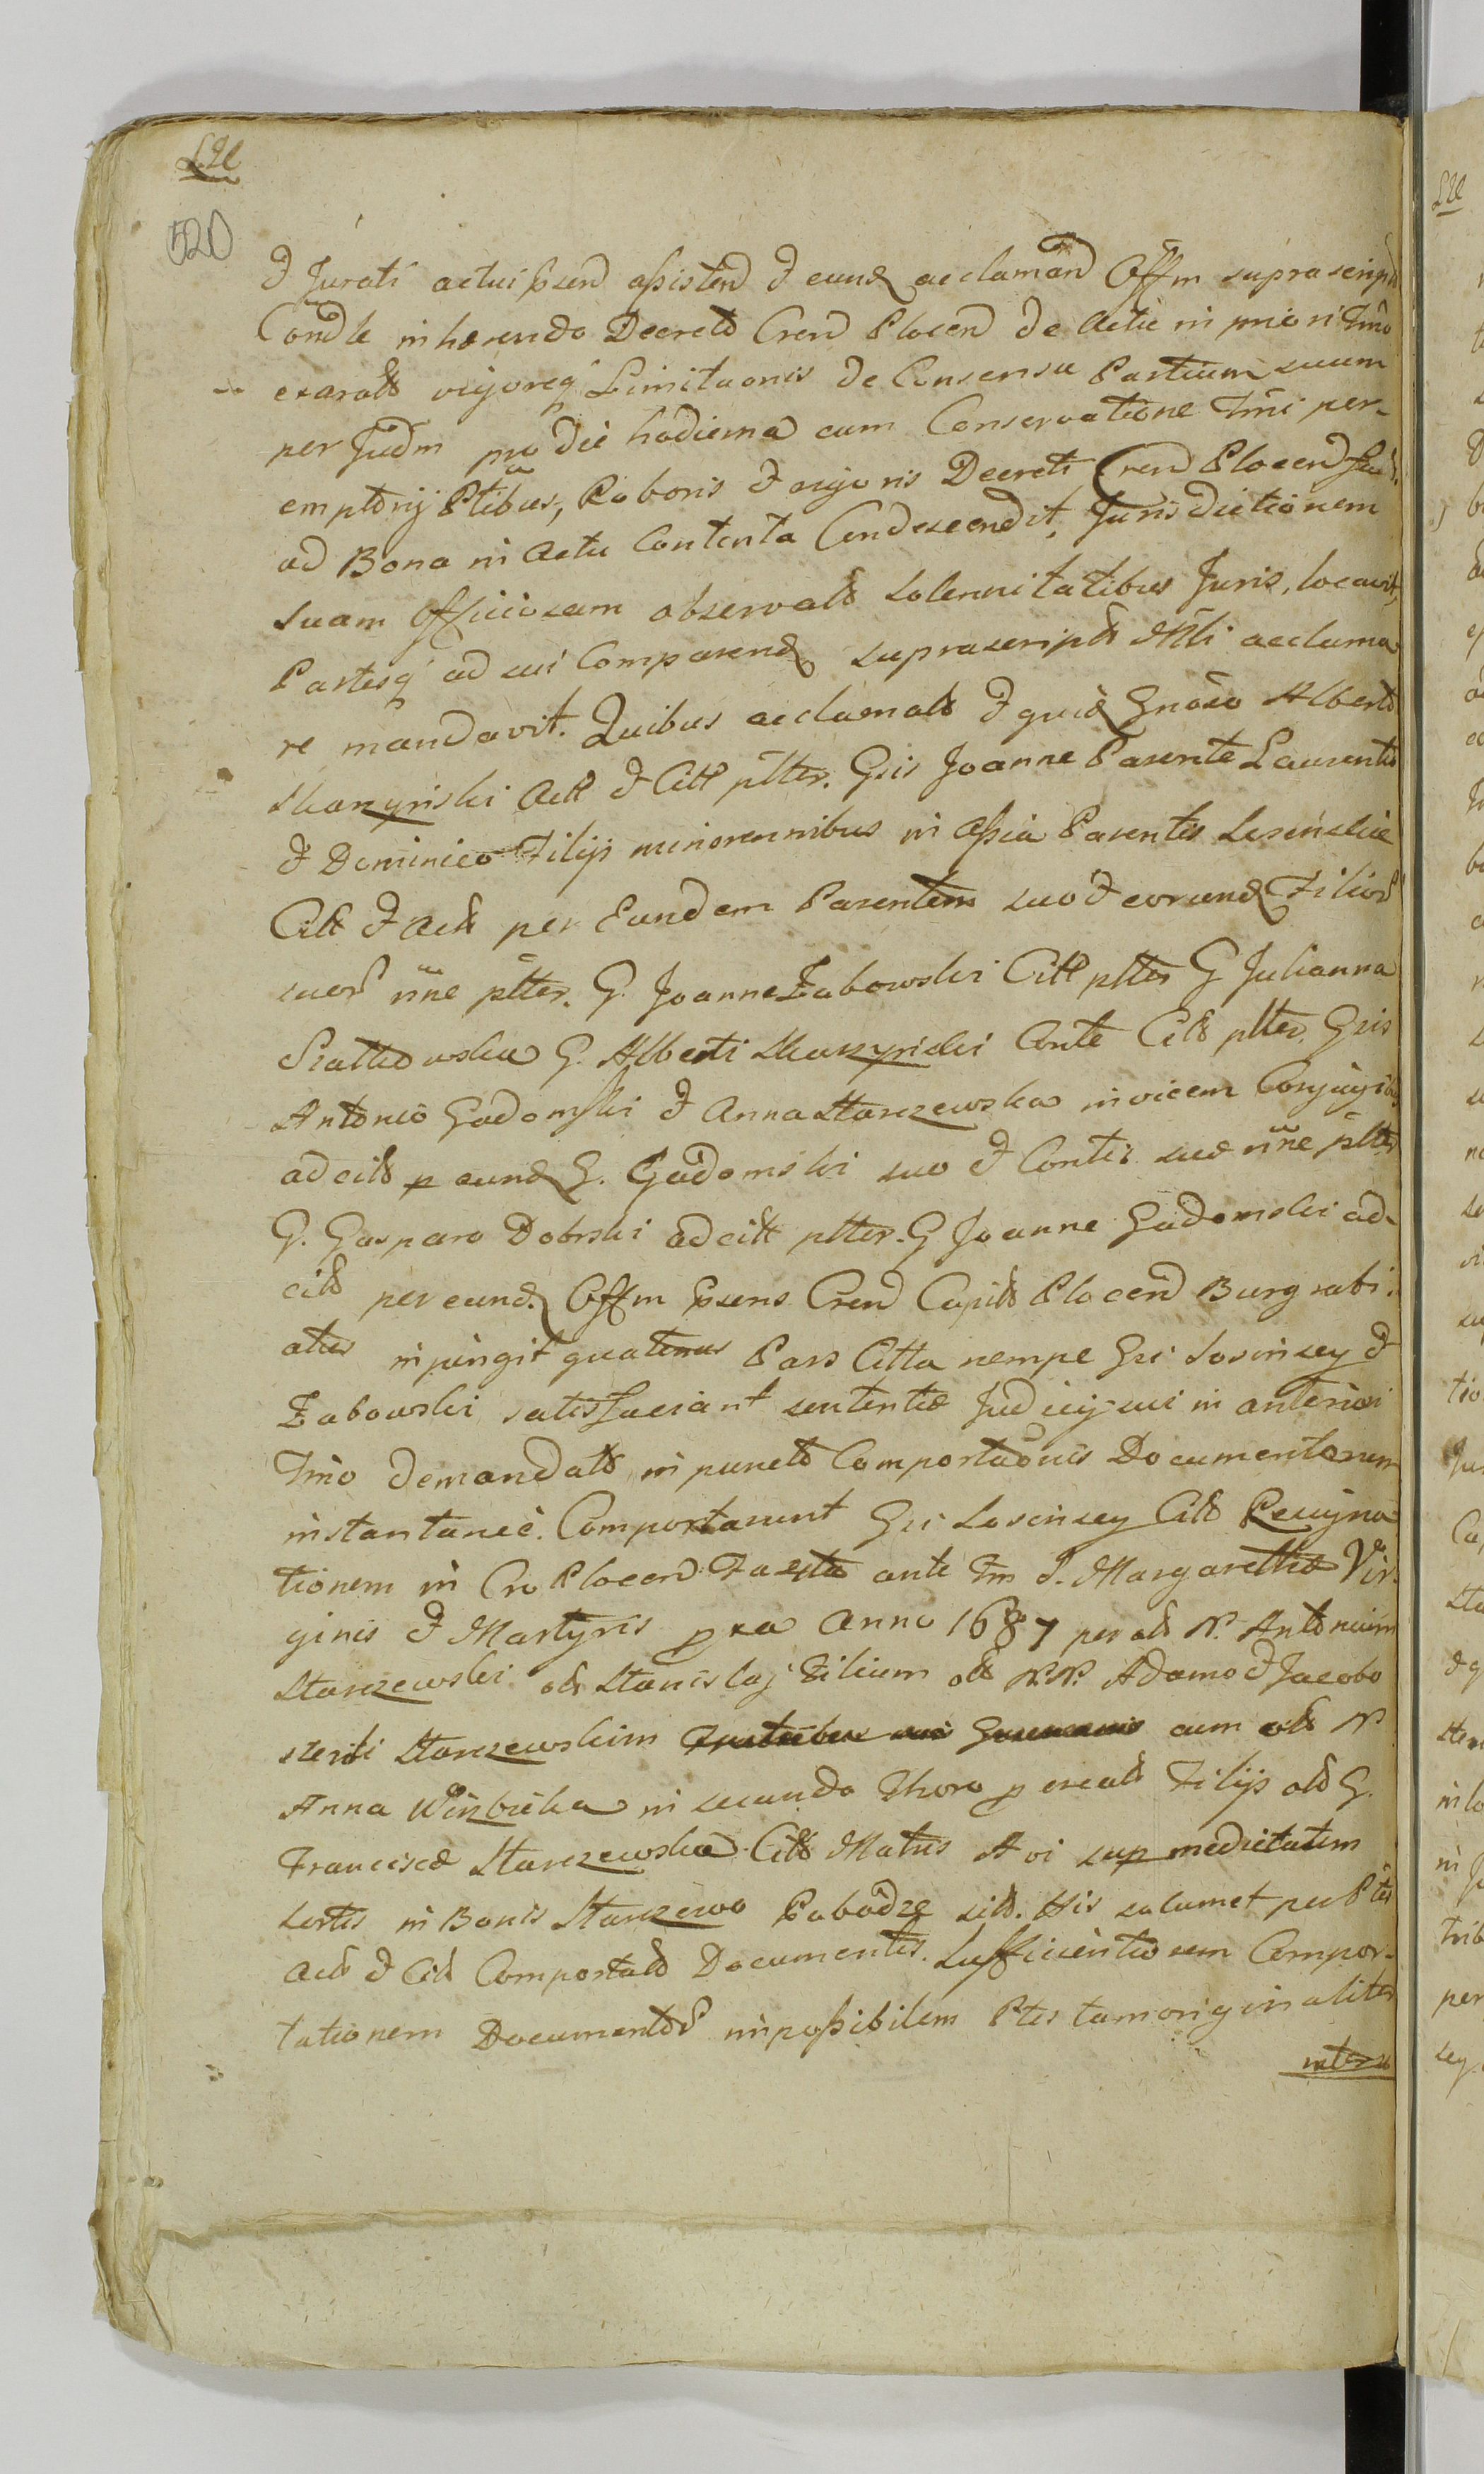 520
& Jurati actui psend assistend & eund acclamand Offm suprascript
Condle inhærendo Decreto Crend Plocen de Actu in priori Tmo
exarato vigoreq Limitaonis de Consensu Partium suum
per Judm pro die hodierna cum Conservatione Tmi per-
emptorij Ptibus, Roboris & vigoris Decreti Crend Plocend
ad Bona in Actu Contenta Condescendit, Jurisdictionem
suam Officiosam observatis solennitatibus Juris, locavit,
Partesq ad sui Comparend suprascripti Mli acclama
re mandavit. Quibus acclamatis & Gnoso Alberto
Skarzynski Act & Citt pltter. Gsis Joanne Parente Laurentio
& Dominico Filijs minorennibus in Assia Parentis Losinskie
Citt & Acts per Eundem Parentem suo & eorund Filior
suor nne pltter. G. Joanne Zabowski Citt pltter G Julianna
G. Alberti Skarzynski Conte Citt pltter. Gsis
Antonio Gadomski & Anna Starczewska invicem Conjugibus
adcitt p eund G. Gadomski suo & Contis suæ nne pltter
G. Gasparo Dobrski adcitt pltter. G Joanne Gadomski ad-
citt per eund. Offm psens Crend Capitt Plocend Burgrabi-
atus injungit quatenus Pars Citta nempe Gsi Losinscy &
Zabowski satisfaciant sententiæ Judicij sui in anteriori
Tmo demandats in puncto Comportaonis Documentorum
instantanee. Comportarunt Gsi Losinscy Citt Resigna
tionem in Cro Plocen Facta ante Fm S. Margarethæ Vir-
ginis & Martyris pxa Anno 1687 per ols N. Antonium
Starczewski ols Stanislaj Filium ols N.N. Adamo & Jacobo
Starczewskim cum ols N
Anna in secundo Thoro pcreats Filijs ols G.
Franciscæ Starczewska Citt Matris Avi sup medietatem
sortis in Bonis Starczewo Pobodze sits. His salumet per Ptes
Acts & Cits Comportatis Documentis. Sufficientiorem Compor-
tationem Documentor impossibilem Ptes tam originaliter